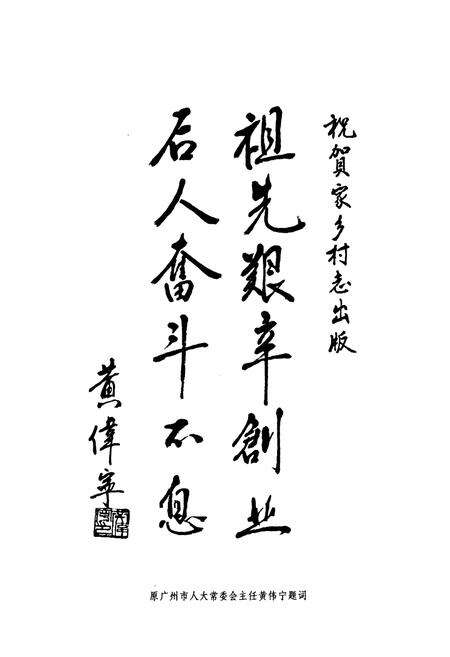 祝贺家乡村志出版
祖先艰辛創业
后人奋斗不息
黄偉寜
原广州市人大常委会主任黄伟宁题词